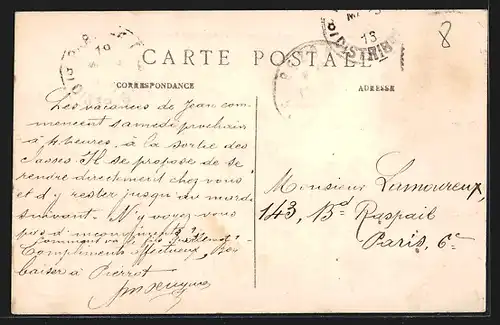 CARTE POSTALE
CORRESPONDANCE
ADRESSE
8
16
DISTRIB
Les vacances de Jean com-
mencent samedi prochain
à 4 heures, à la sortie des
classes. Il se propose de se
rendre directement chez vous
et d'y rester jusqu'au mardi
suivant. N'y voyez-vous
pas d'inconvénients?
Comment va
Compliments affectueux,
baiser à Pierrot
Monsieur Lamoureux,
143, Bd Raspail
Paris, 6e